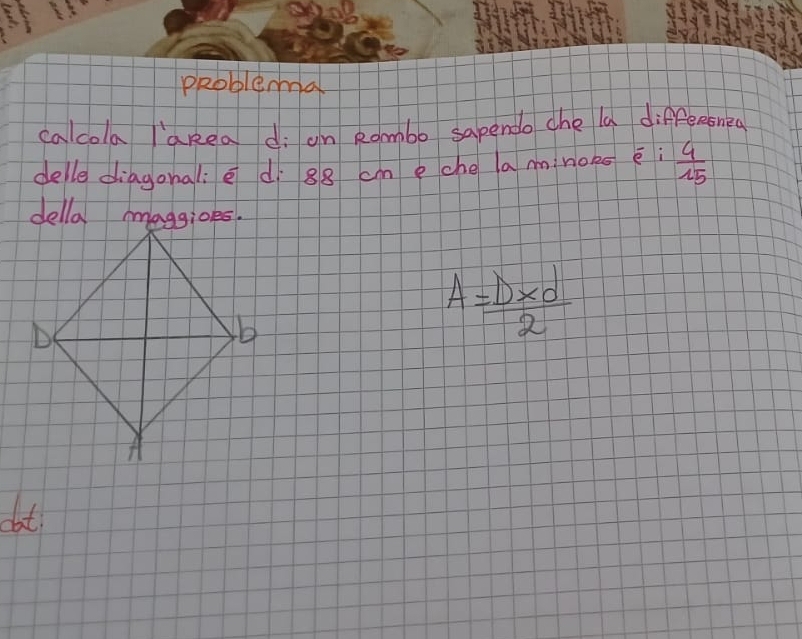 problema
calcola l'area di un Rombo sapendo che la differenza
delle diagonali è di 88 cm e che la minore è i 4/15
della maggiore.
A = D×d/2
D
b
A
dati